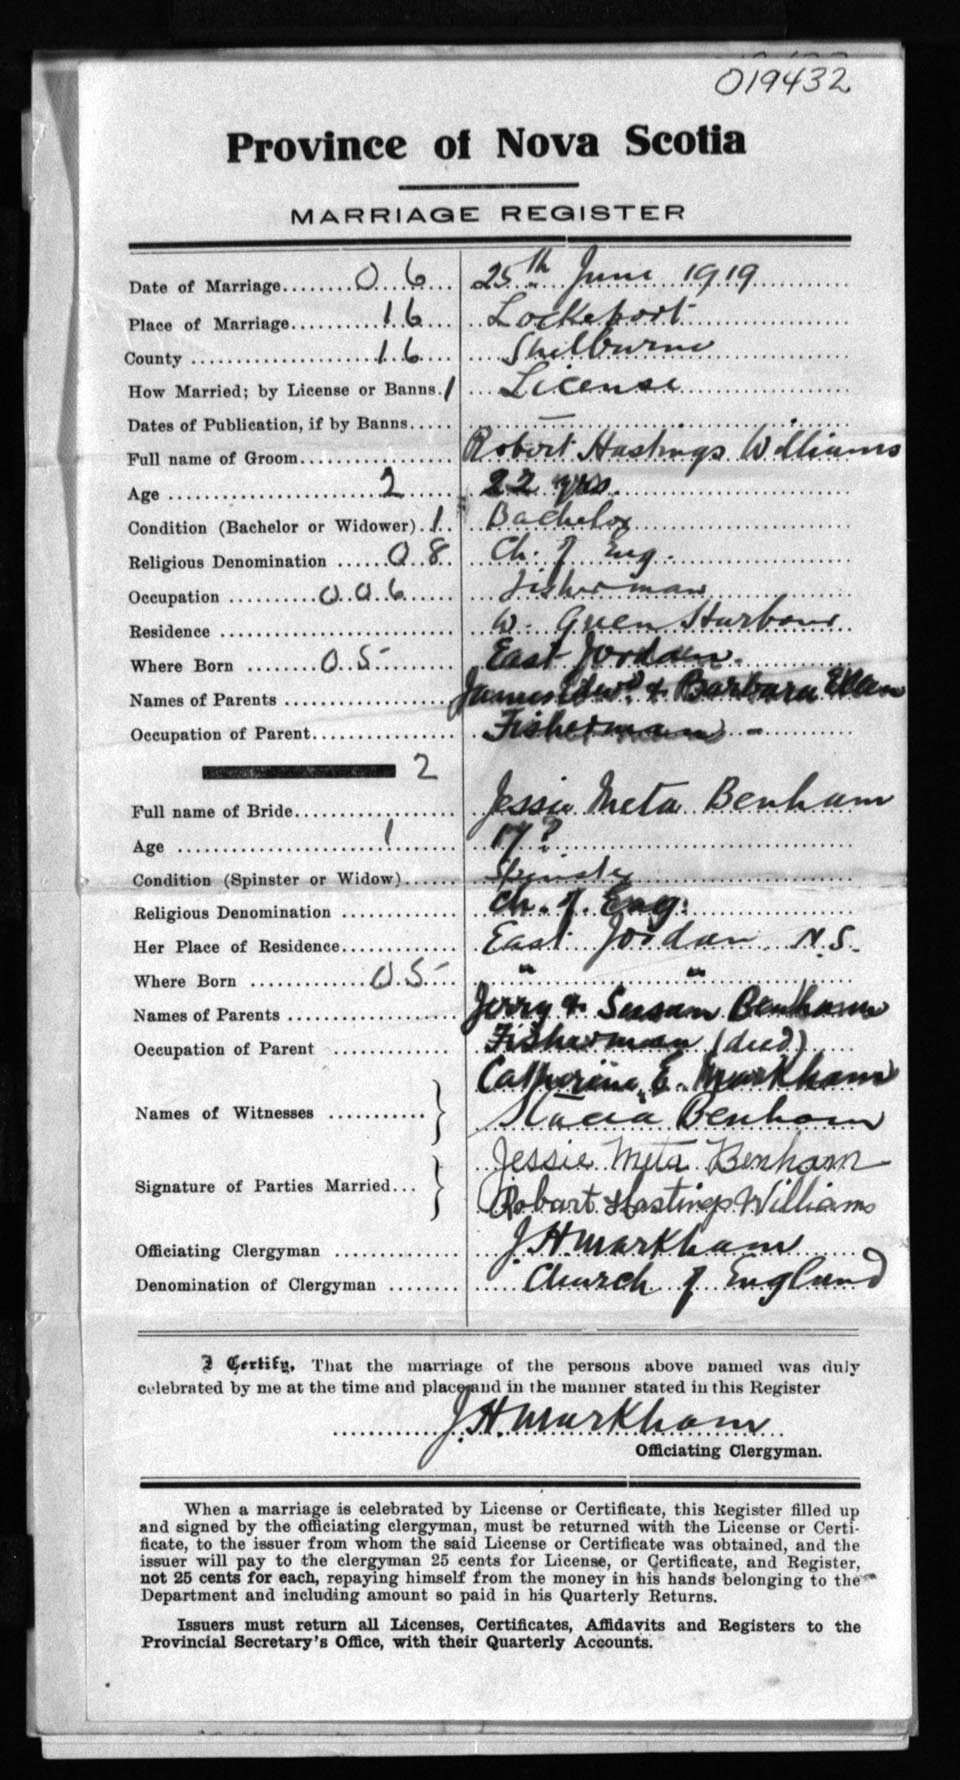 019432
Province of Nova Scotia
MARRIAGE REGISTER
Date of Marriage........0 6... 25th June 1919
Place of Marriage...........16.... Lockeport
County ....................16.... Shelburne
How Married; by License or Banns.1 License
Dates of Publication, if by Banns..... —
Full name of Groom.................. Robert Hastings Williams
Age ......................2...... 22 yrs.
Condition (Bachelor or Widower)..1.. Bachelor
Religious Denomination .....08.. Ch. of Eng.
Occupation .........006..... Fisherman
Residence ........................... W. Green Harbour
Where Born .......05....... East Jordan.
Names of Parents .................. James Edwd. & Barbara Ellen
Occupation of Parent................ Fisherman -
2
Full name of Bride................... Jessie Meta Benham
Age .....................1....... 17?
Condition (Spinster or Widow)...... Spinster
Religious Denomination ............. Ch. of Eng.
Her Place of Residence............. East Jordan N.S.
Where Born ............05.... " "
Names of Parents .................... Jerry & Susan Benham
Occupation of Parent ............... Fisherman (died)
Catherine E. Markham
Names of Witnesses ........... }
Benham
Jessie Meta Benham
Signature of Parties Married... }
Robart Hastings Williams
Officiating Clergyman .............. J. H. Markham
Denomination of Clergyman ........ Church of England
I Certify, That the marriage of the persons above named was duly
celebrated by me at the time and place and in the manner stated in this Register
J. H. Markham
Officiating Clergyman.
When a marriage is celebrated by License or Certificate, this Register filled up
and signed by the officiating clergyman, must be returned with the License or Certi-
ficate, to the issuer from whom the said License or Certificate was obtained, and the
issuer will pay to the clergyman 25 cents for License, or Certificate, and Register,
not 25 cents for each, repaying himself from the money in his hands belonging to the
Department and including amount so paid in his Quarterly Returns.
Issuers must return all Licenses, Certificates, Affidavits and Registers to the
Provincial Secretary's Office, with their Quarterly Accounts.